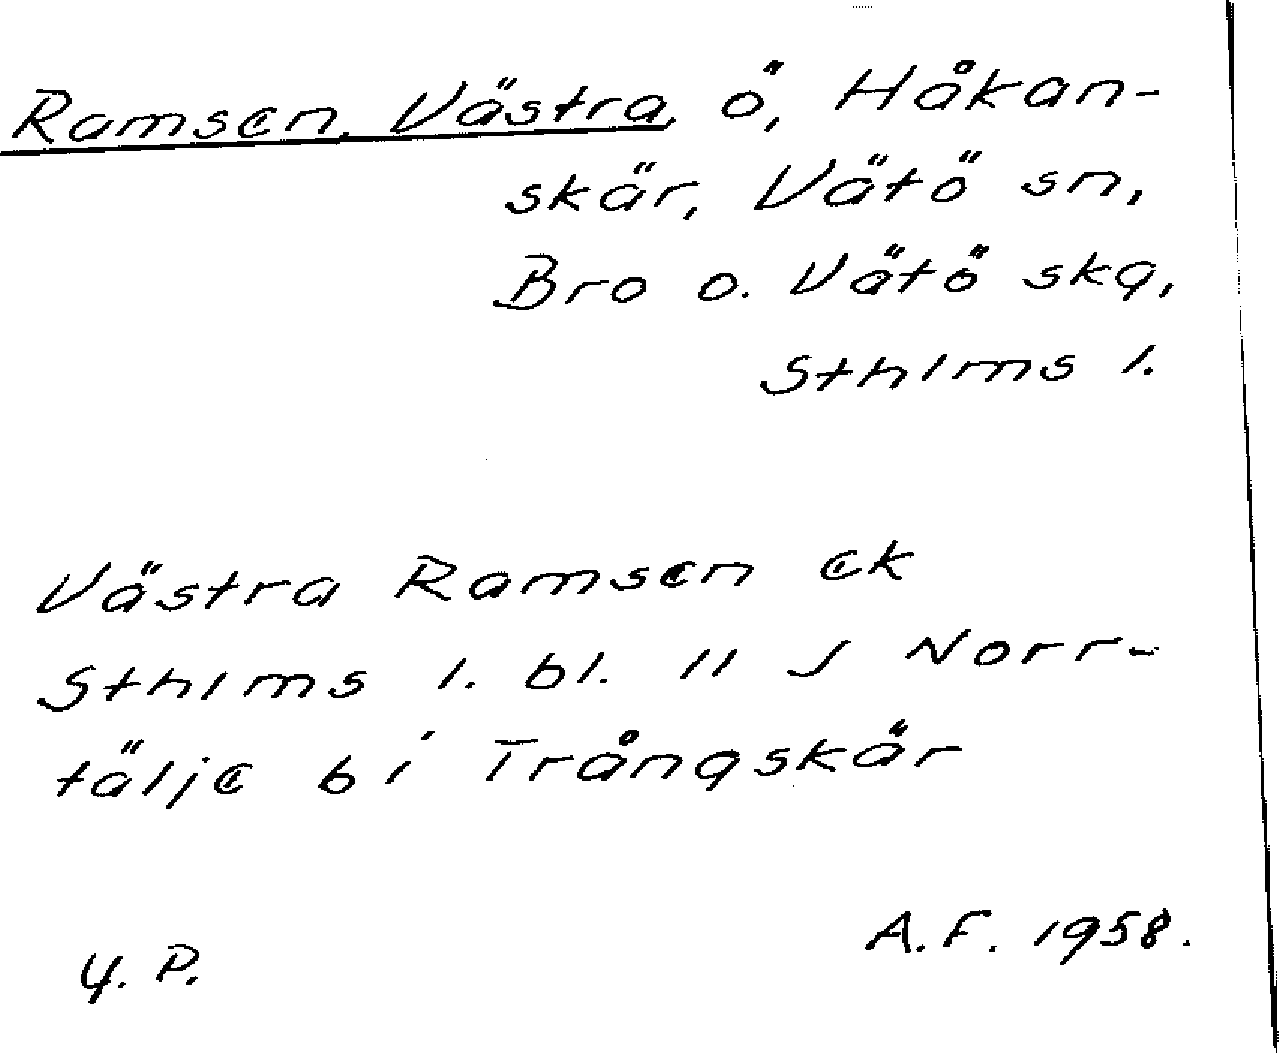 Ramsen, Västra, ö, Håkan-
skär, Vätö sn,
Bro o. Vätö skg,
Sthlms l.
Västra Ramsen ek
Sthlms l. bl. 11 J Norr-
tälje bi Trångskär
Y. P.
A. F. 1958.